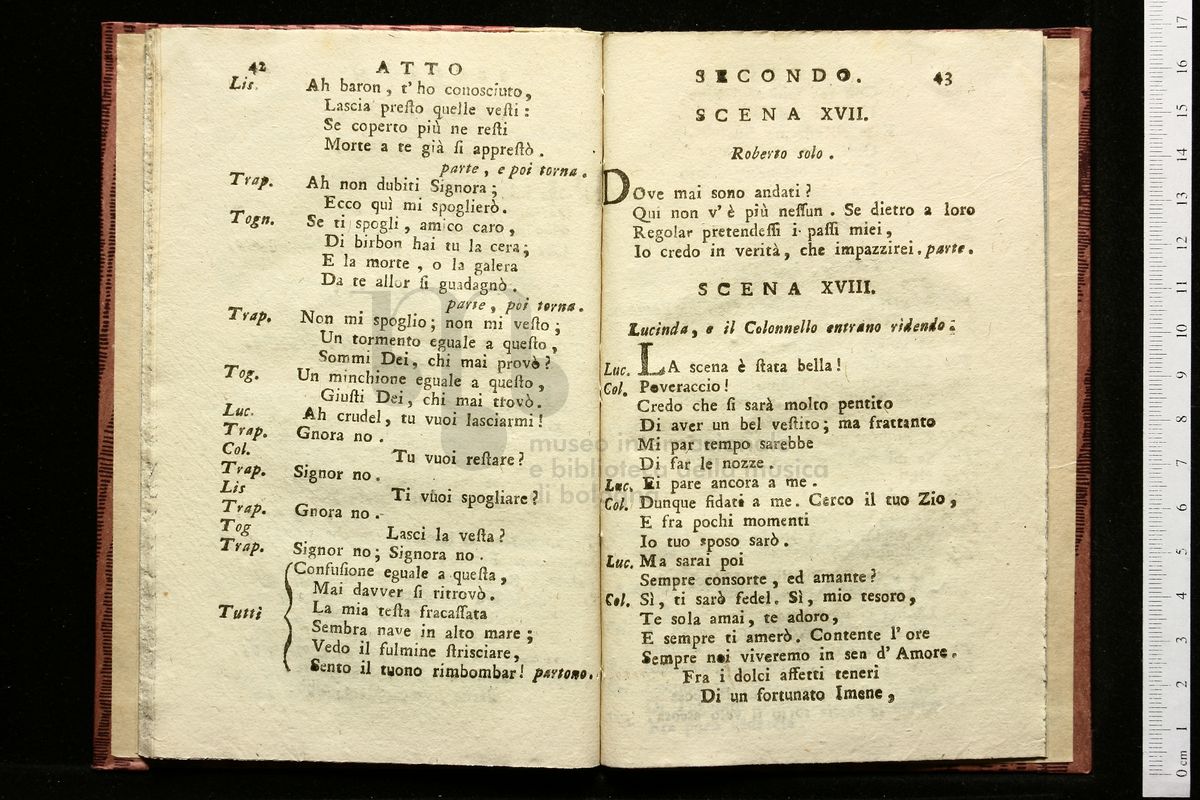 42 ATTO
Lis. Ah baron, t' ho conosciuto,
Lascia presto quelle vesti:
Se coperto più ne resti
Morte a te già si apprestò.
parte, e poi torna.
Trap. Ah non dubiti Signora;
Ecco quì mi spoglierò.
Togn. Se ti spogli, amico caro,
Di birbon hai tu la cera;
E la morte, o la galera
Da te allor si guadagnò.
parte, poi torna.
Trap. Non mi spoglio; non mi vesto;
Un tormento eguale a questo,
Sommi Dei, chi mai provò?
Tog. Un minchione eguale a questo,
Giusti Dei, chi mai trovò.
Luc. Ah crudel, tu vuoi lasciarmi!
Trap. Gnora no.
Col. Tu vuoi restare?
Trap. Signor no.
Lis Ti vuoi spogliare?
Trap. Gnora no.
Tog Lasci la vesta?
Trap. Signor no; Signora no.
Confusione eguale a questa,
Mai davver si ritrovò.
Tutti La mia testa fracassata
Sembra nave in alto mare;
Vedo il fulmine strisciare,
Sento il tuono rimbombar! partono.
SECONDO. 43
SCENA XVII.
Roberto solo.
DOve mai sono andati?
Qui non v' è più nessun. Se dietro a loro
Regolar pretendessi i passi miei,
Io credo in verità, che impazzirei. parte.
SCENA XVIII.
Lucinda, e il Colonnello entrano ridendo:
Luc. LA scena è stata bella!
Col. Poveraccio!
Credo che si sarà molto pentito
Di aver un bel vestito; ma frattanto
Mi par tempo sarebbe
Di far le nozze.
Luc. Ei pare ancora a me.
Col. Dunque fidati a me. Cerco il tuo Zio,
E fra pochi momenti
Io tuo sposo sarò.
Luc. Ma sarai poi
Sempre consorte, ed amante?
Col. Sì, ti sarò fedel. Sì, mio tesoro,
Te sola amai, te adoro,
E sempre ti amerò. Contente l' ore
Sempre noi viveremo in sen d' Amore.
Fra i dolci affetti teneri
Di un fortunato Imene,
museo internazionale
e biblioteca della musica
di bologna
0 cm 1 2 3 4 5 6 7 8 9 10 11 12 13 14 15 16 17